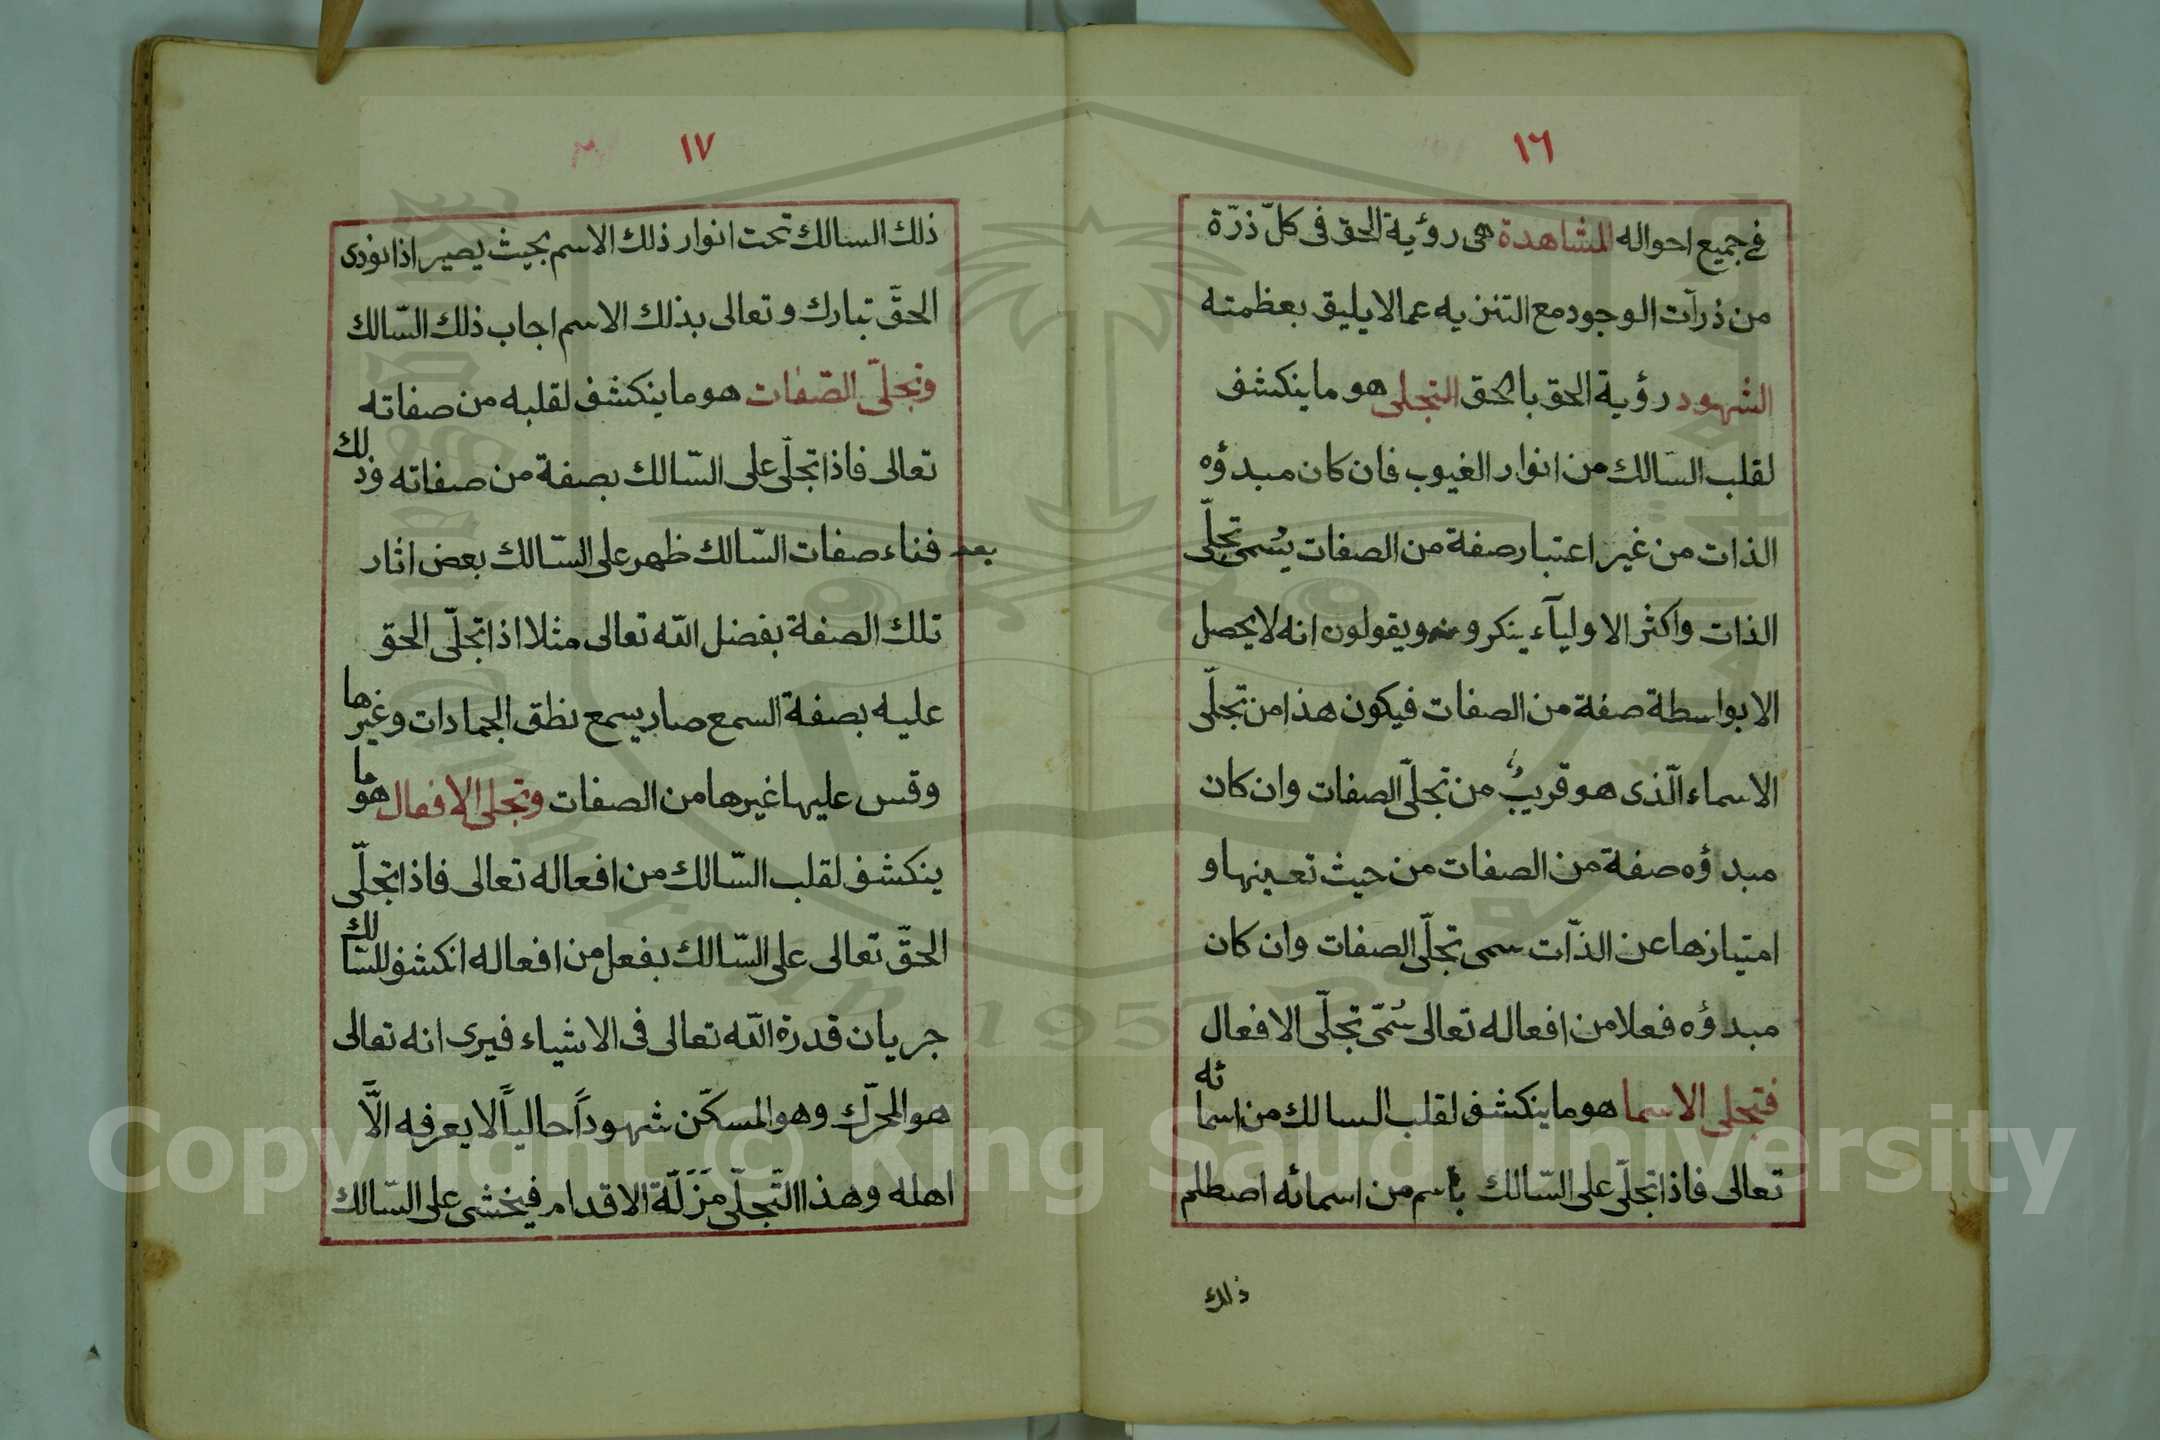 ١٦
في جميع احواله المشاهدة هى رؤية الحق فى كلّ ذرّة
من ذرآت الوجود مع التنزيه عما لا يليق بعظمته
الشهود رؤية الحق بالحق التجلى هو ما ينكشف
لقلب السّالك من انوار الغيوب فان كان مبدؤه
الذات من غير اعتبار صفة من الصفات يسُمى تجلّى
الذات واكثر الاوليآء ينكرونه ويقولون انه لا يحصل
الا بواسطة صفة من الصفات فيكون هذا من تجلّى
الاسماء الّذى هو قريبٌ من تجلّى الصفات وان كان
مبدؤه صفة من الصفات من حيث تعينها و
امتيازها عن الذّات سمى تجلّى الصفات وان كان
مبدؤه فعلا من افعاله تعالى سُمّى تجلّى الافعال
فتجلى الاسما هو ما ينكشف لقلب السالك من اسمائه
تعالى فاذا تجلّى على السّالك باسم من اسمائه اصطلم
ذلك
١٧
ذلك السالك تحت انوار ذلك الاسم بحيث يصير اذا نودى
الحقّ تبارك وتعالى بذلك الاسم اجاب ذلك السّالك
وتجلّى الصّفات هو ما ينكشف لقلبه من صفاته
تعالى فاذا تجلّى على السّالك بصفة من صفاته وذلك
بعد فناء صفات السّالك ظهر على السّالك بعض اثار
تلك الصفة بفضل الله تعالى مثلا اذا تجلّى الحق
عليه بصفة السمع صار يسمع نطق الجمادات وغيرها
وقس عليها غيرها من الصفات وتجلى الافعال هو ما
ينكشف لقلب السّالك من افعاله تعالى فاذا تجلّى
الحقّ تعالى على السّالك بفعل من افعاله انكشف للسّالك
جريان قدرة الله تعالى فى الاشياء فيرى انه تعالى
هو المحرّك وهو المسكّن شهوداً حالياً لا يعرفه الّا
اهله وهذا التّجلّى مَزَلّة الاقدام فيخشى على السّالك
Copyright © King Saud University